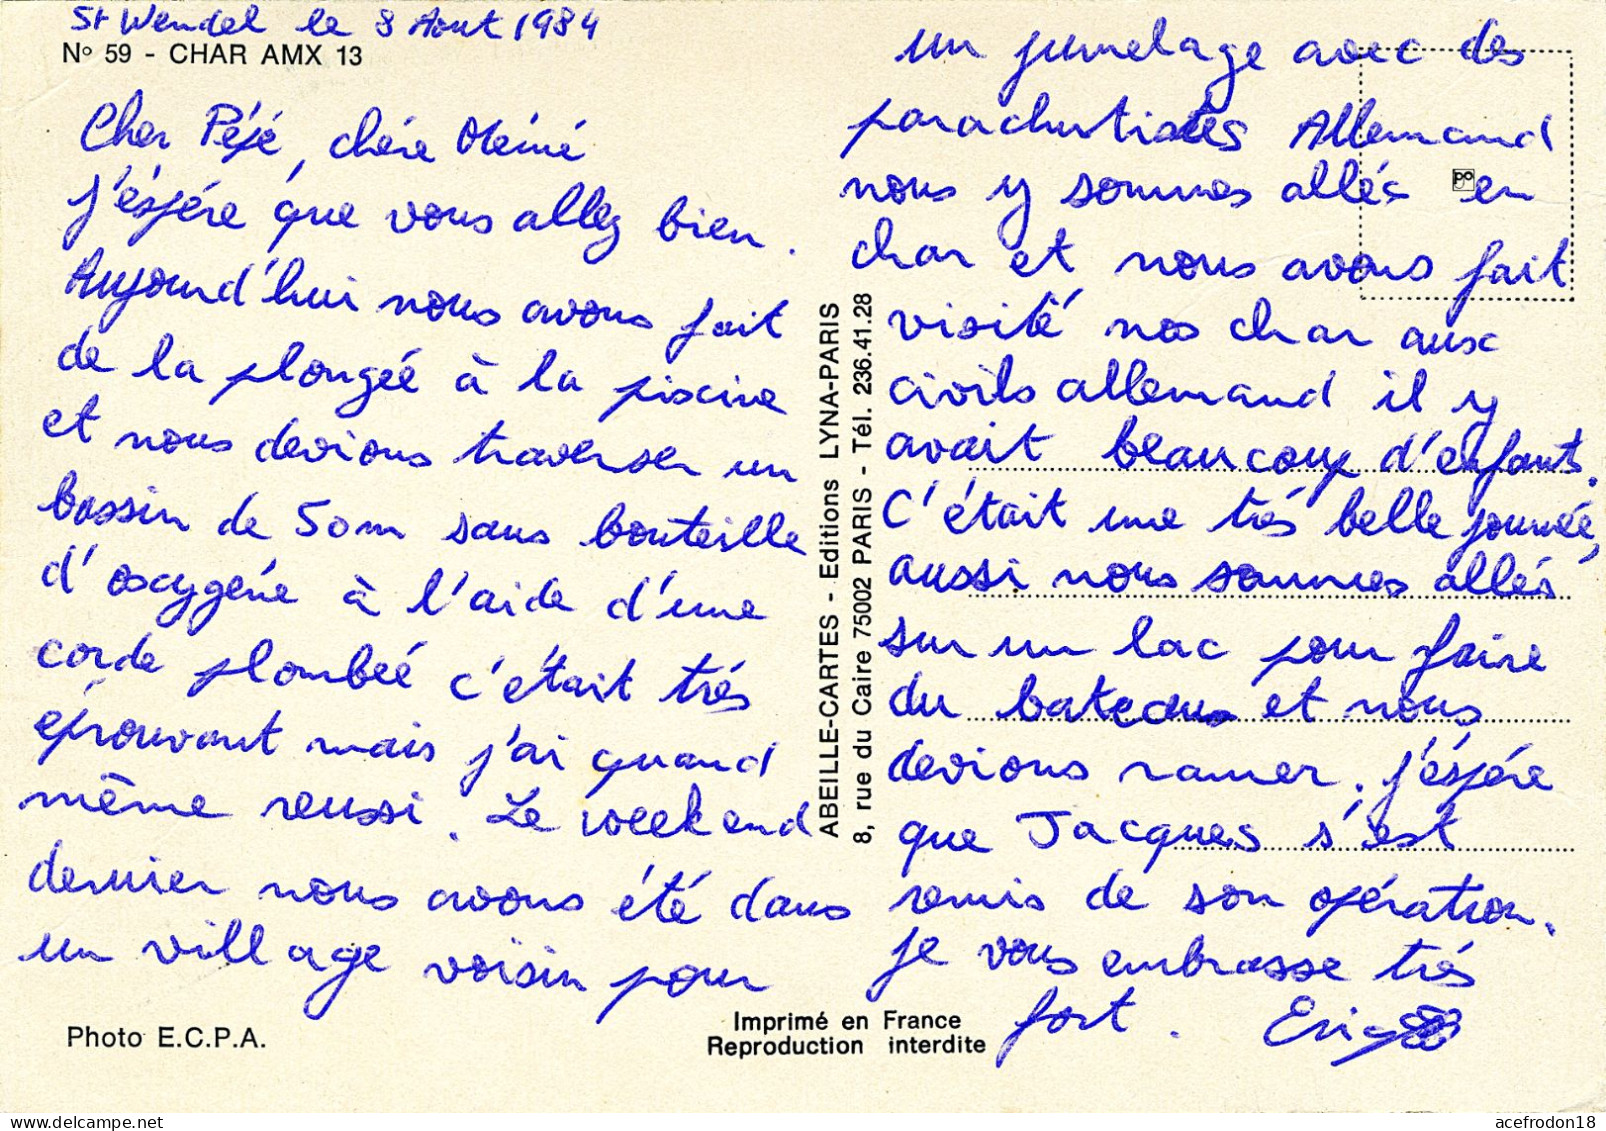 St Wendel le 8 Aout 1984
N° 59 - CHAR AMX 13
Cher Pépé, chére Mémé
j'éspére que vous allez bien.
Aujourd'hui nous avons fait
de la plongée à la piscine
et nous devions traverser un
bassin de 50m sans bouteille
d'oxygéne à l'aide d'une
corde plombeé c'était trés
éprouvant mais j'ai quand
même reussi. Le week end
dernier nous avons été dans
un village voisin pour
Photo E.C.P.A.
ABEILLE-CARTES - Editions LYNA-PARIS
8, rue du Caire 75002 PARIS - Tél. 236.41.28
Imprimé en France
Reproduction interdite
un jumelage avec des
parachutistes Allemand
nous y sommes allés en
char et nous avons fait
visité nos char aux
civils allemand il y
avait beaucoup d'enfants.
C'était une trés belle journée,
aussi nous sommes allés
sur un lac pour faire
du bateaus et nous
devions ramer. j'éspére
que Jacques s'est
remis de son opération.
je vous embrasse trés
fort. Eric
acefrodon18